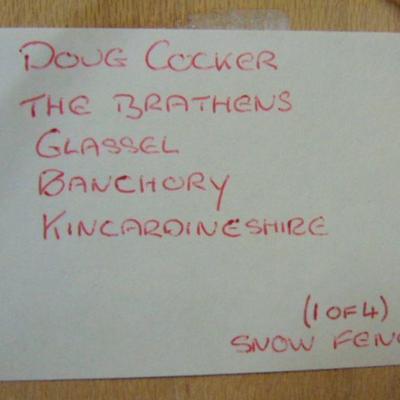 DOUG COCKER
THE BRATHENS
GLASSEL
BANCHORY
KINCARDINESHIRE
(1 OF 4)
SNOW FENC